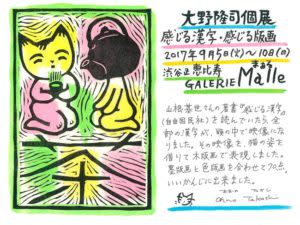 茶
大野隆司個展
感じる漢字・感じる版画
2017年9月5日(火)～10日(日)
渋谷区恵比寿
まぁる
GALERIE Malle
山根基世さんの著書『感じる漢字』
(自由国民社)を読んでいたら、全
部の漢字が、頭の中で映像にな
りました。その映像を、猫の姿を
借りて木版画で表現しました。
墨版画と色版画を合わせて70点、
いいかんじに出来ました。
おおの たかし
Ohno Takashi